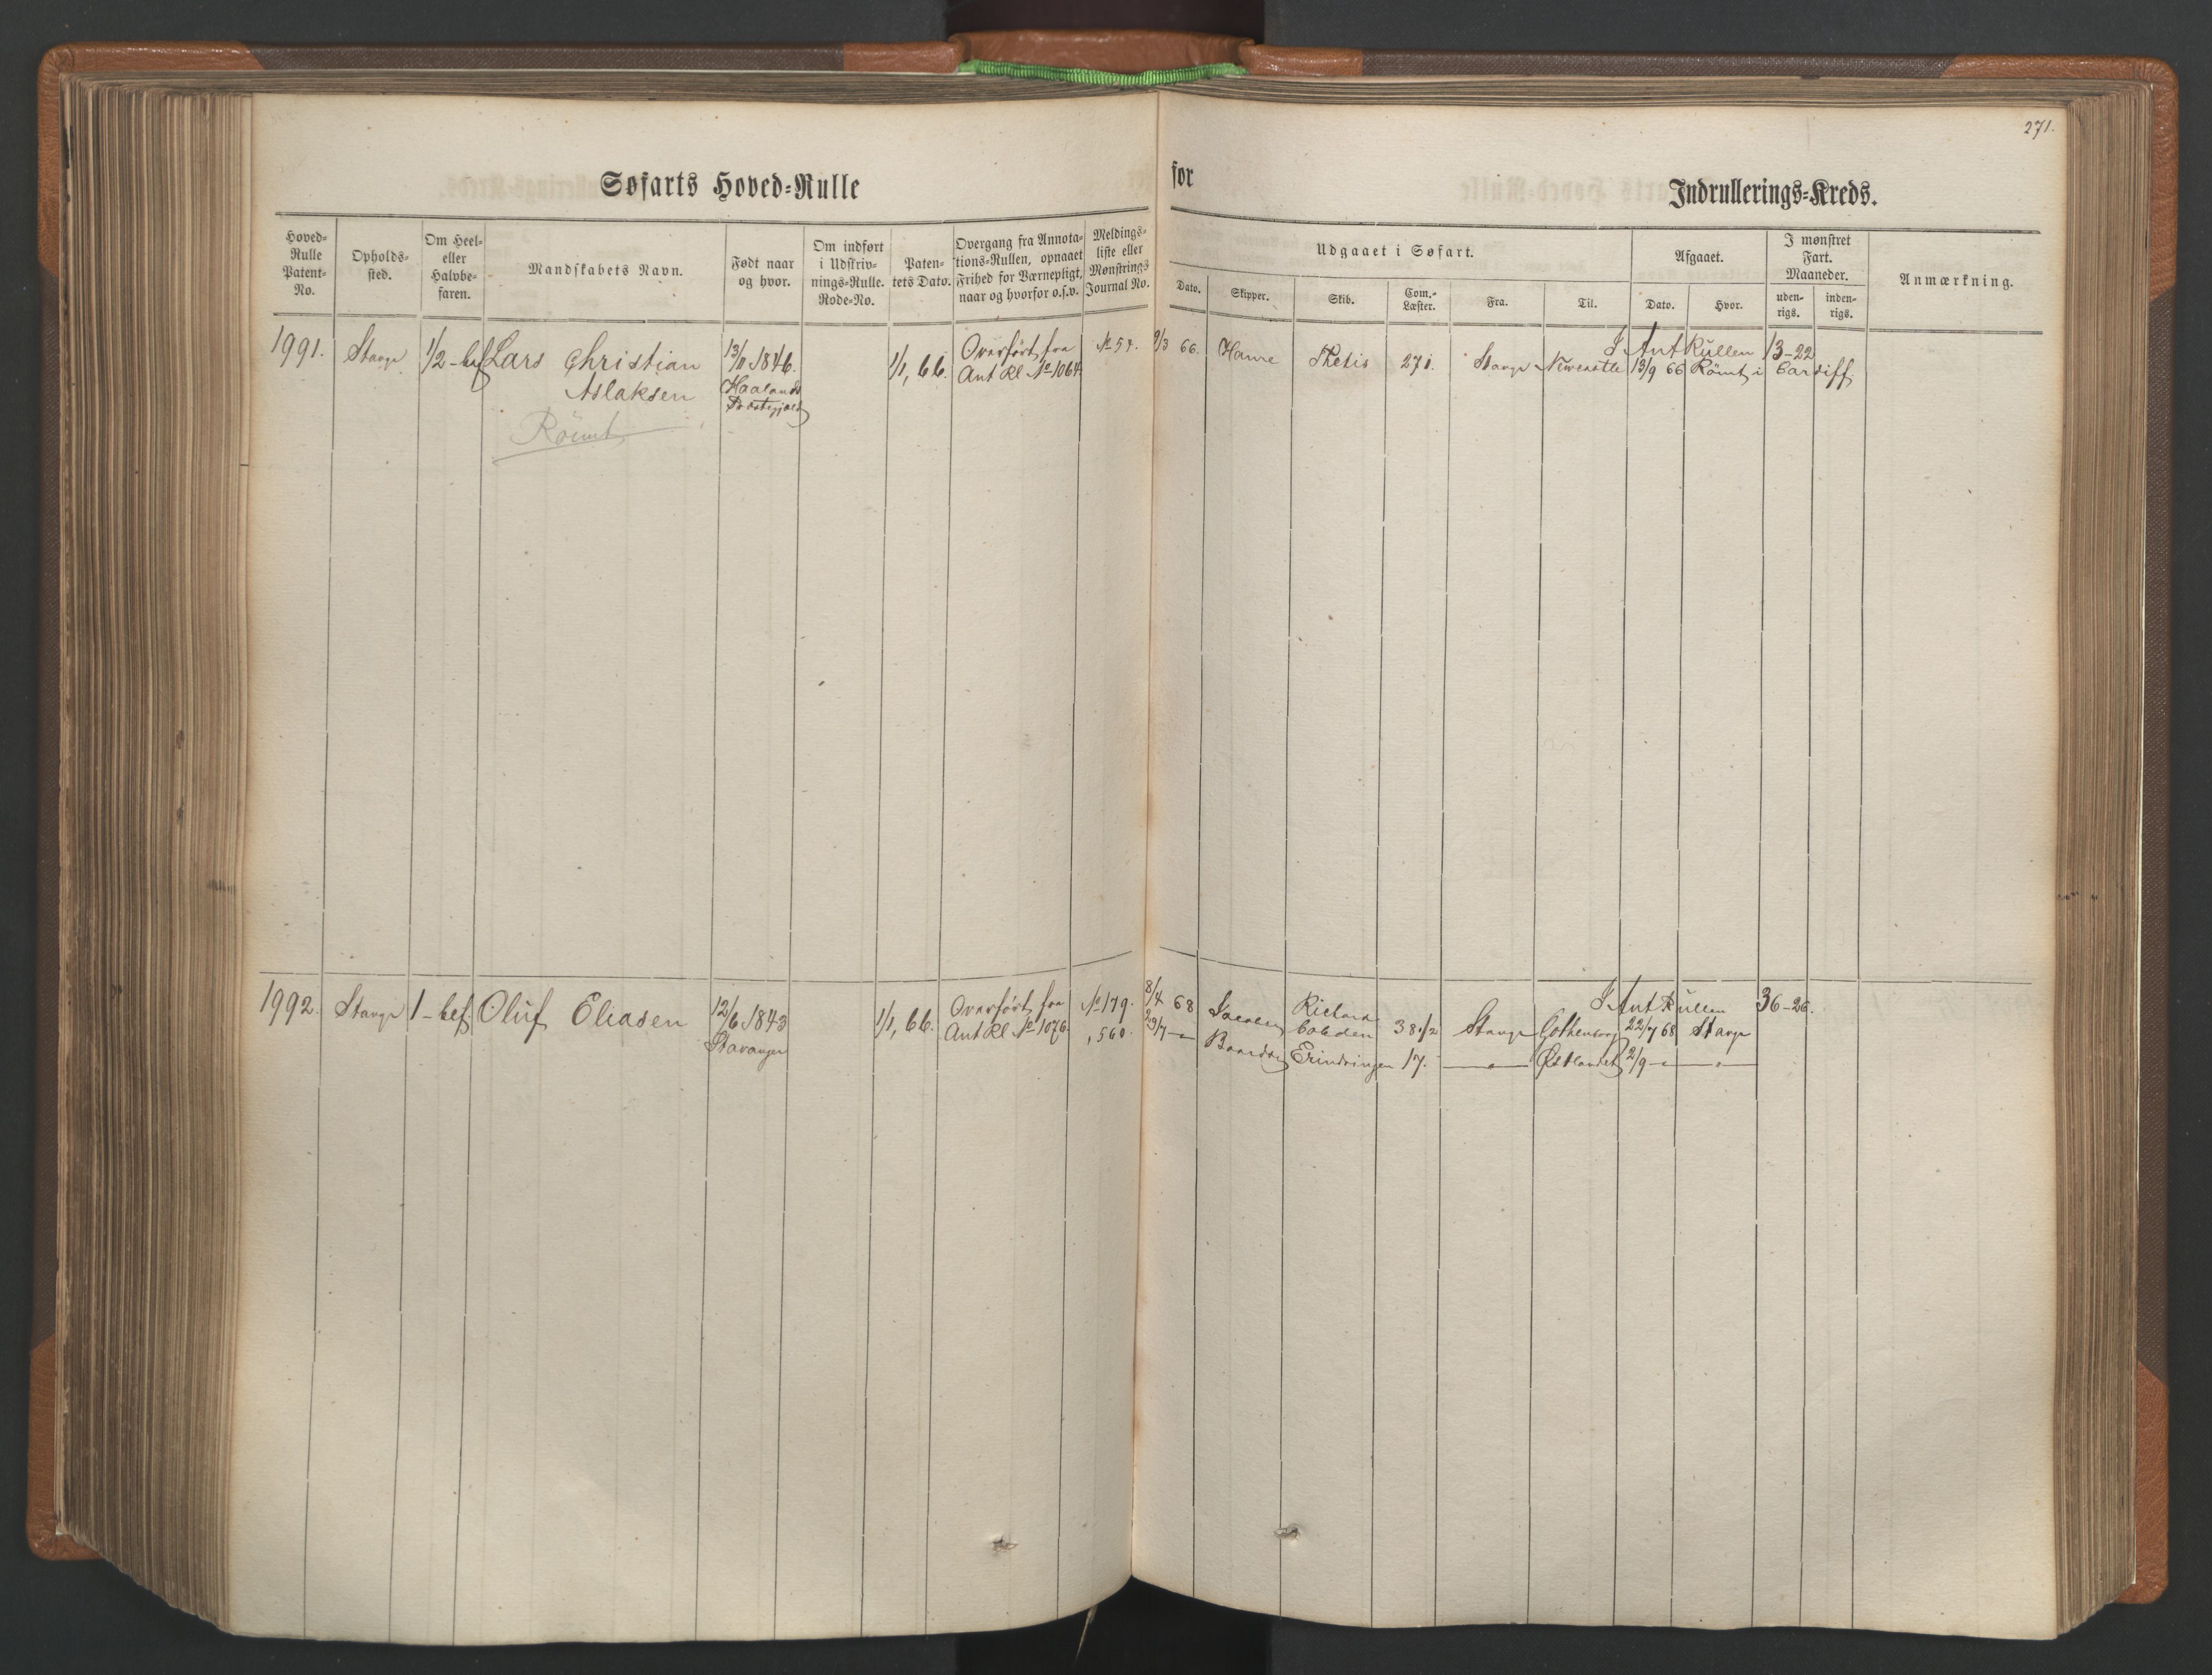 271.
Søfarts Hoved=Rulle for Indrullerings=Kreds.
Hoved=
Rulle
Patent=
No.
Opholds=
sted.
Om Heel=
eller
Halvbe=
faren.
Mandskabets Navn.
Født naar
og hvor.
Om indført
i Udskriv=
nings=Rulle.
Rode=No.
Paten=
tets Dato.
Overgang fra Annota=
tions=Rullen, opnaaet
Frihed for Værnepligt,
naar og hvorfor o.s.v.
Meldings=
liste eller
Mønstrings
Journal No.
Udgaaet i Søfart.
Dato.
Skipper.
Skib.
Com.=
Læster.
Fra.
Til.
Afgaaet.
Dato.
Hvor.
I mønstret
Fart.
Maaneder.
uden=
rigs.
inden=
rigs.
Anmærkning.
1991. Stavgr 1/2 - bef Lars Christian
Aslaksen
Römt
13/11 1846.
Haalands
Præstegjæld
1/1, 66.
Overført fra
Ant Rl No 1064
No 54.
9/3 66. Hanre Thetis 271. Stavgr Newcastle
I Ant Rullen 13-22
13/9 66 Römt i Cardiff
1992. Stavgr 1 - bef. Oluf Eliasen
12/6 1843
Stavanger
1/1, 66.
Overført fra
Ant Rl No 1076.
No 179.
, 560.
8/4 68 Jacobsen Richard
Cobden 38 1/2 Stavgr Gothenborg
I Ant Rullen 36-26.
22/7 68 Stavgr
29/7 — " Baardsen Erindringen 17. — " — Østlandet 2/9 — " — " —